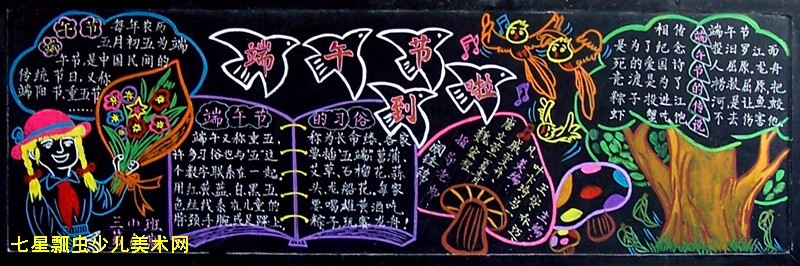 端午节 每年农历
五月初五为端
午节,是中国民间的
传统节日,又称
端阳节,重五节
……
端午节到啦
端午节的习俗
端午又称重五,
许多习俗也与"五"这
个数字联系在一起.
用红黄蓝白黑五
色丝线系在儿童的
脖颈手腕或足踝上,
称为长命缕,各家
要插"五端":菖蒲、
艾草、石榴花、蒜
头、龙船花,每家
要喝雄黄酒吃
粽子,玩赛龙舟!
端午节的传说
相传端午节
是为了纪念投汨罗江而
死的爱国诗人屈原,龙舟
竞渡是为了捞救屈原,把
粽子投进江河,是让鱼蛟
虾蟹吃他不去伤害他
三小班
七星瓢虫少儿美术网